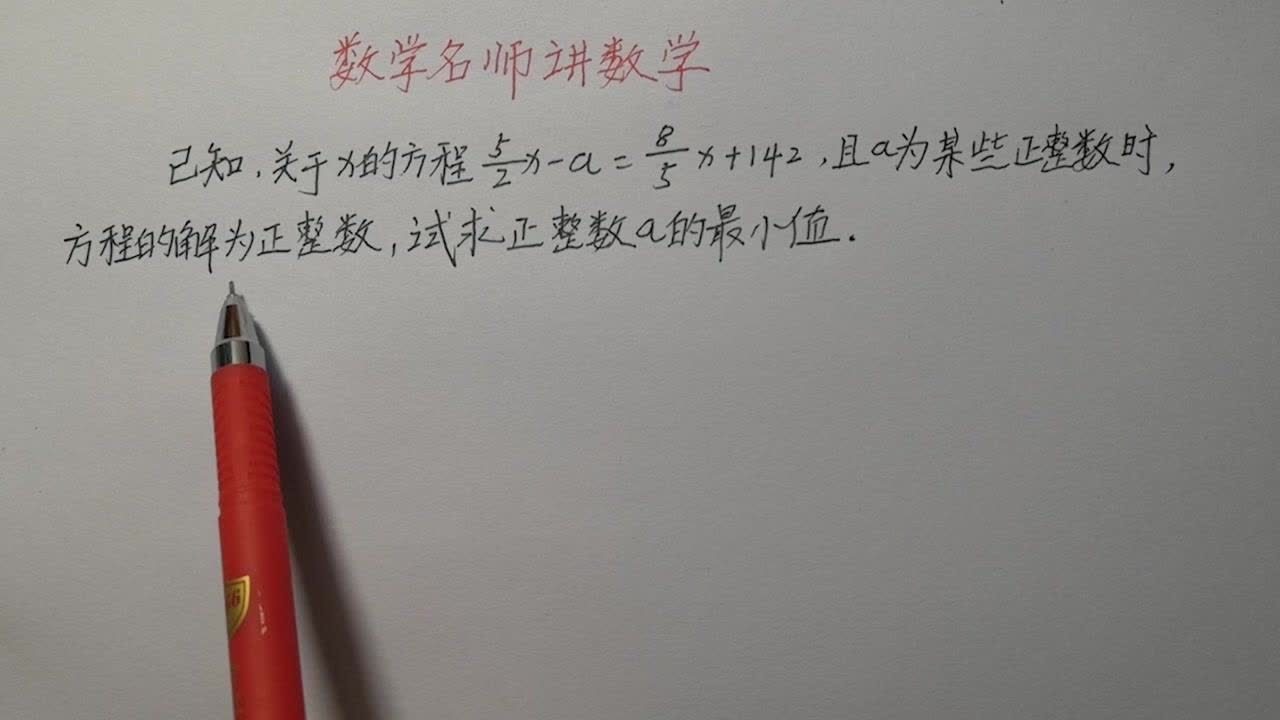 数学名师讲数学
已知,关于x的方程5/2x-a=8/5x+142,且a为某些正整数时,
方程的解为正整数,试求正整数a的最小值.